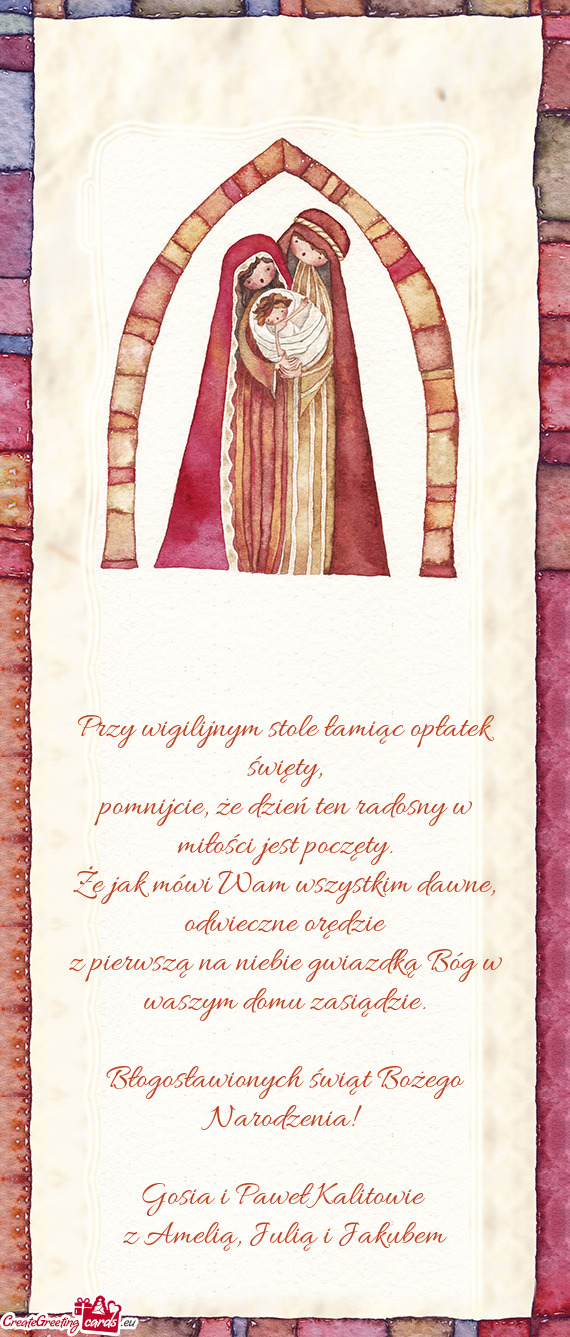 Przy wigilijnym stole łamiąc opłatek
święty,
pomnijcie, że dzień ten radosny w
miłości jest poczęty.
Że jak mówi Wam wszystkim dawne,
odwieczne orędzie
z pierwszą na niebie gwiazdką Bóg w
waszym domu zasiądzie.
Błogosławionych świąt Bożego
Narodzenia!
Gosia i Paweł Kalitowie
z Amelią, Julią i Jakubem
CreateGreeting cards .eu